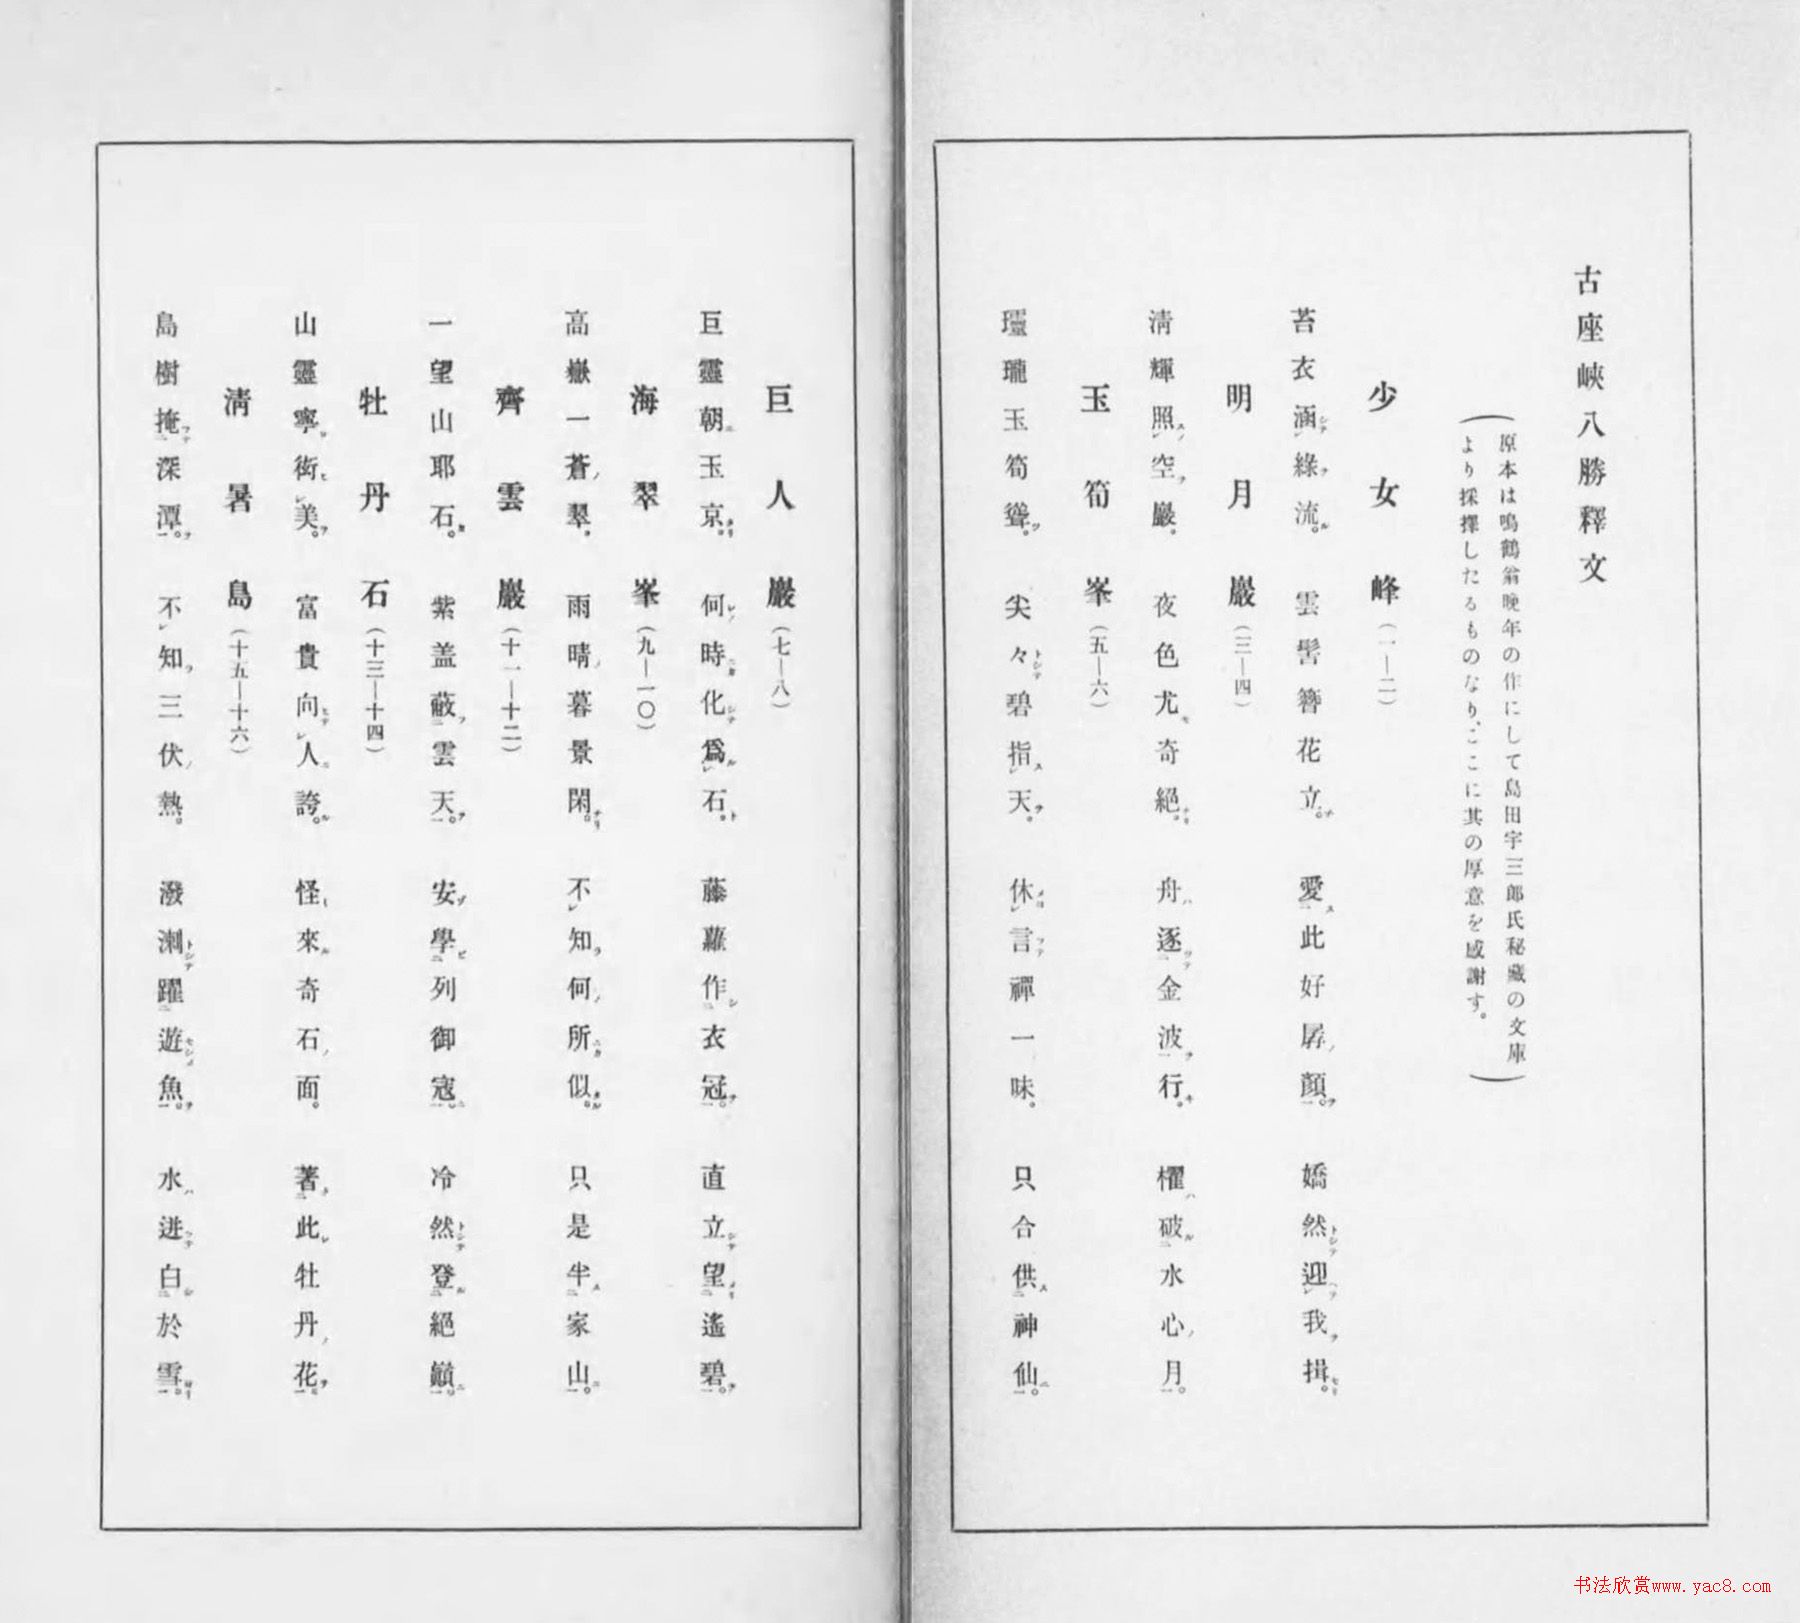 古座峽八勝釋文
(原本は鳴鶴翁晩年の作にして島田宇三郎氏秘藏の文庫
より採擇したるものなり、ここに其の厚意を感謝す。)
少女峰(一—二)
苔衣涵綠流。雲髻簪花立。愛此好孱顏。嬌然迎我揖。
明月巖(三—四)
淸輝照空巖。夜色尤奇絕。舟逐金波行。櫂破水心月。
玉筍峯(五—六)
瓏玉筍聳。尖々碧指天。休言禪一味。只合供神仙。
巨人巖(七—八)
巨靈朝玉京。何時化爲石。藤蘿作衣冠。直立望遙碧。
海翠峯(九—一〇)
高嶽一蒼翠。雨晴暮景閑。不知何所似。只是半家山。
齊雲巖(十一—十二)
一望山耶石。紫盖蔽雲天。安學列御寇。冷然登絕巓。
牡丹石(十三—十四)
山靈寧衒美。富貴向人誇。怪來奇石面。著此牡丹花。
淸暑島(十五—十六)
島樹掩深潭。不知三伏熱。潑溂躍遊魚。水迸白於雪。
书法欣赏www.yac8.com